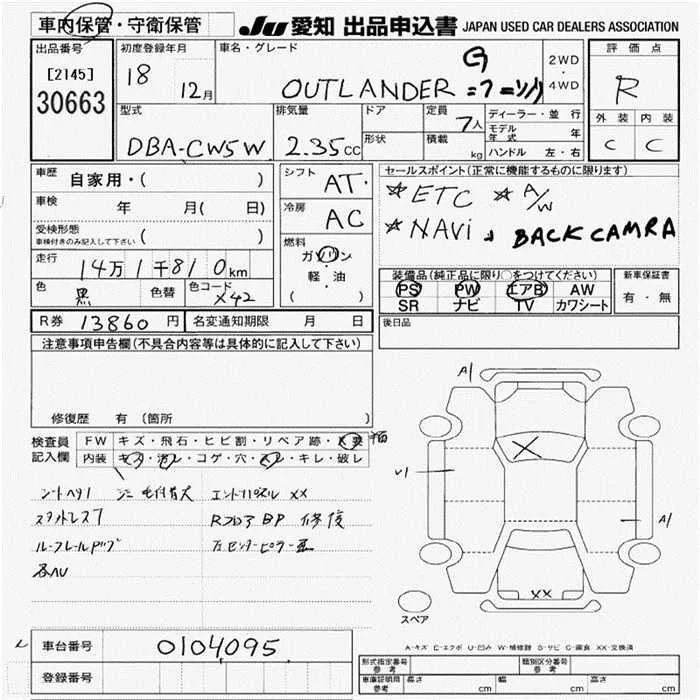 車内保管・守衛保管 JU 愛知 出品申込書 JAPAN USED CAR DEALERS ASSOCIATION
出品番号 初度登録年月 車名・グレード 2WD ・ 4WD 評価点
[2145] 18 12月 OUTLANDER G R
30663
型式 排気量 ドア 定員 ディーラー・並行 外装 内装
DBA-CW5W 2.35 CC 形状 7人 モデル年式 年 C C
積載 kg ハンドル 左・右
車歴 自家用・( ) シフト AT セールスポイント(正常に機能するものに限ります)
車検 年 月( 日) 冷房 AC ☆ETC ☆A/W
受検形態 ( ) ☆NAVi BACK CAMRA
車検付きのみ記入して下さい
走行 14万1千810km 燃料 ガソリン 軽・油 ( )
装備品(純正品に限り○をつけてください) 新車保証書
色 黒 色替 色コード X42 PS PW エアB AW 有・無
SR ナビ TV カワシート
R券 13860円 名変通知期限 月 日 後日品
注意事項申告欄(不具合内容等は具体的に記入して下さい)
修復歴 有 (箇所
検査員記入欄 FW キズ・飛石・ヒビ割・リペア跡・X要
内装 キズ・汚レ・コゲ・穴・スレ・キレ・破レ
A1
U1
A1
XX
エンドパネル XX
RフロアBP 修復
ルーフレール
各AU
スペア
A-キズ E-エクボ U-凹み W-補修跡 S-サビ C-腐食 XX-交換済
車台番号 0104095
登録番号
型式指定番号 参考 類別区分番号 参考
車庫証明用 参考 長さ cm 幅 cm 高さ cm